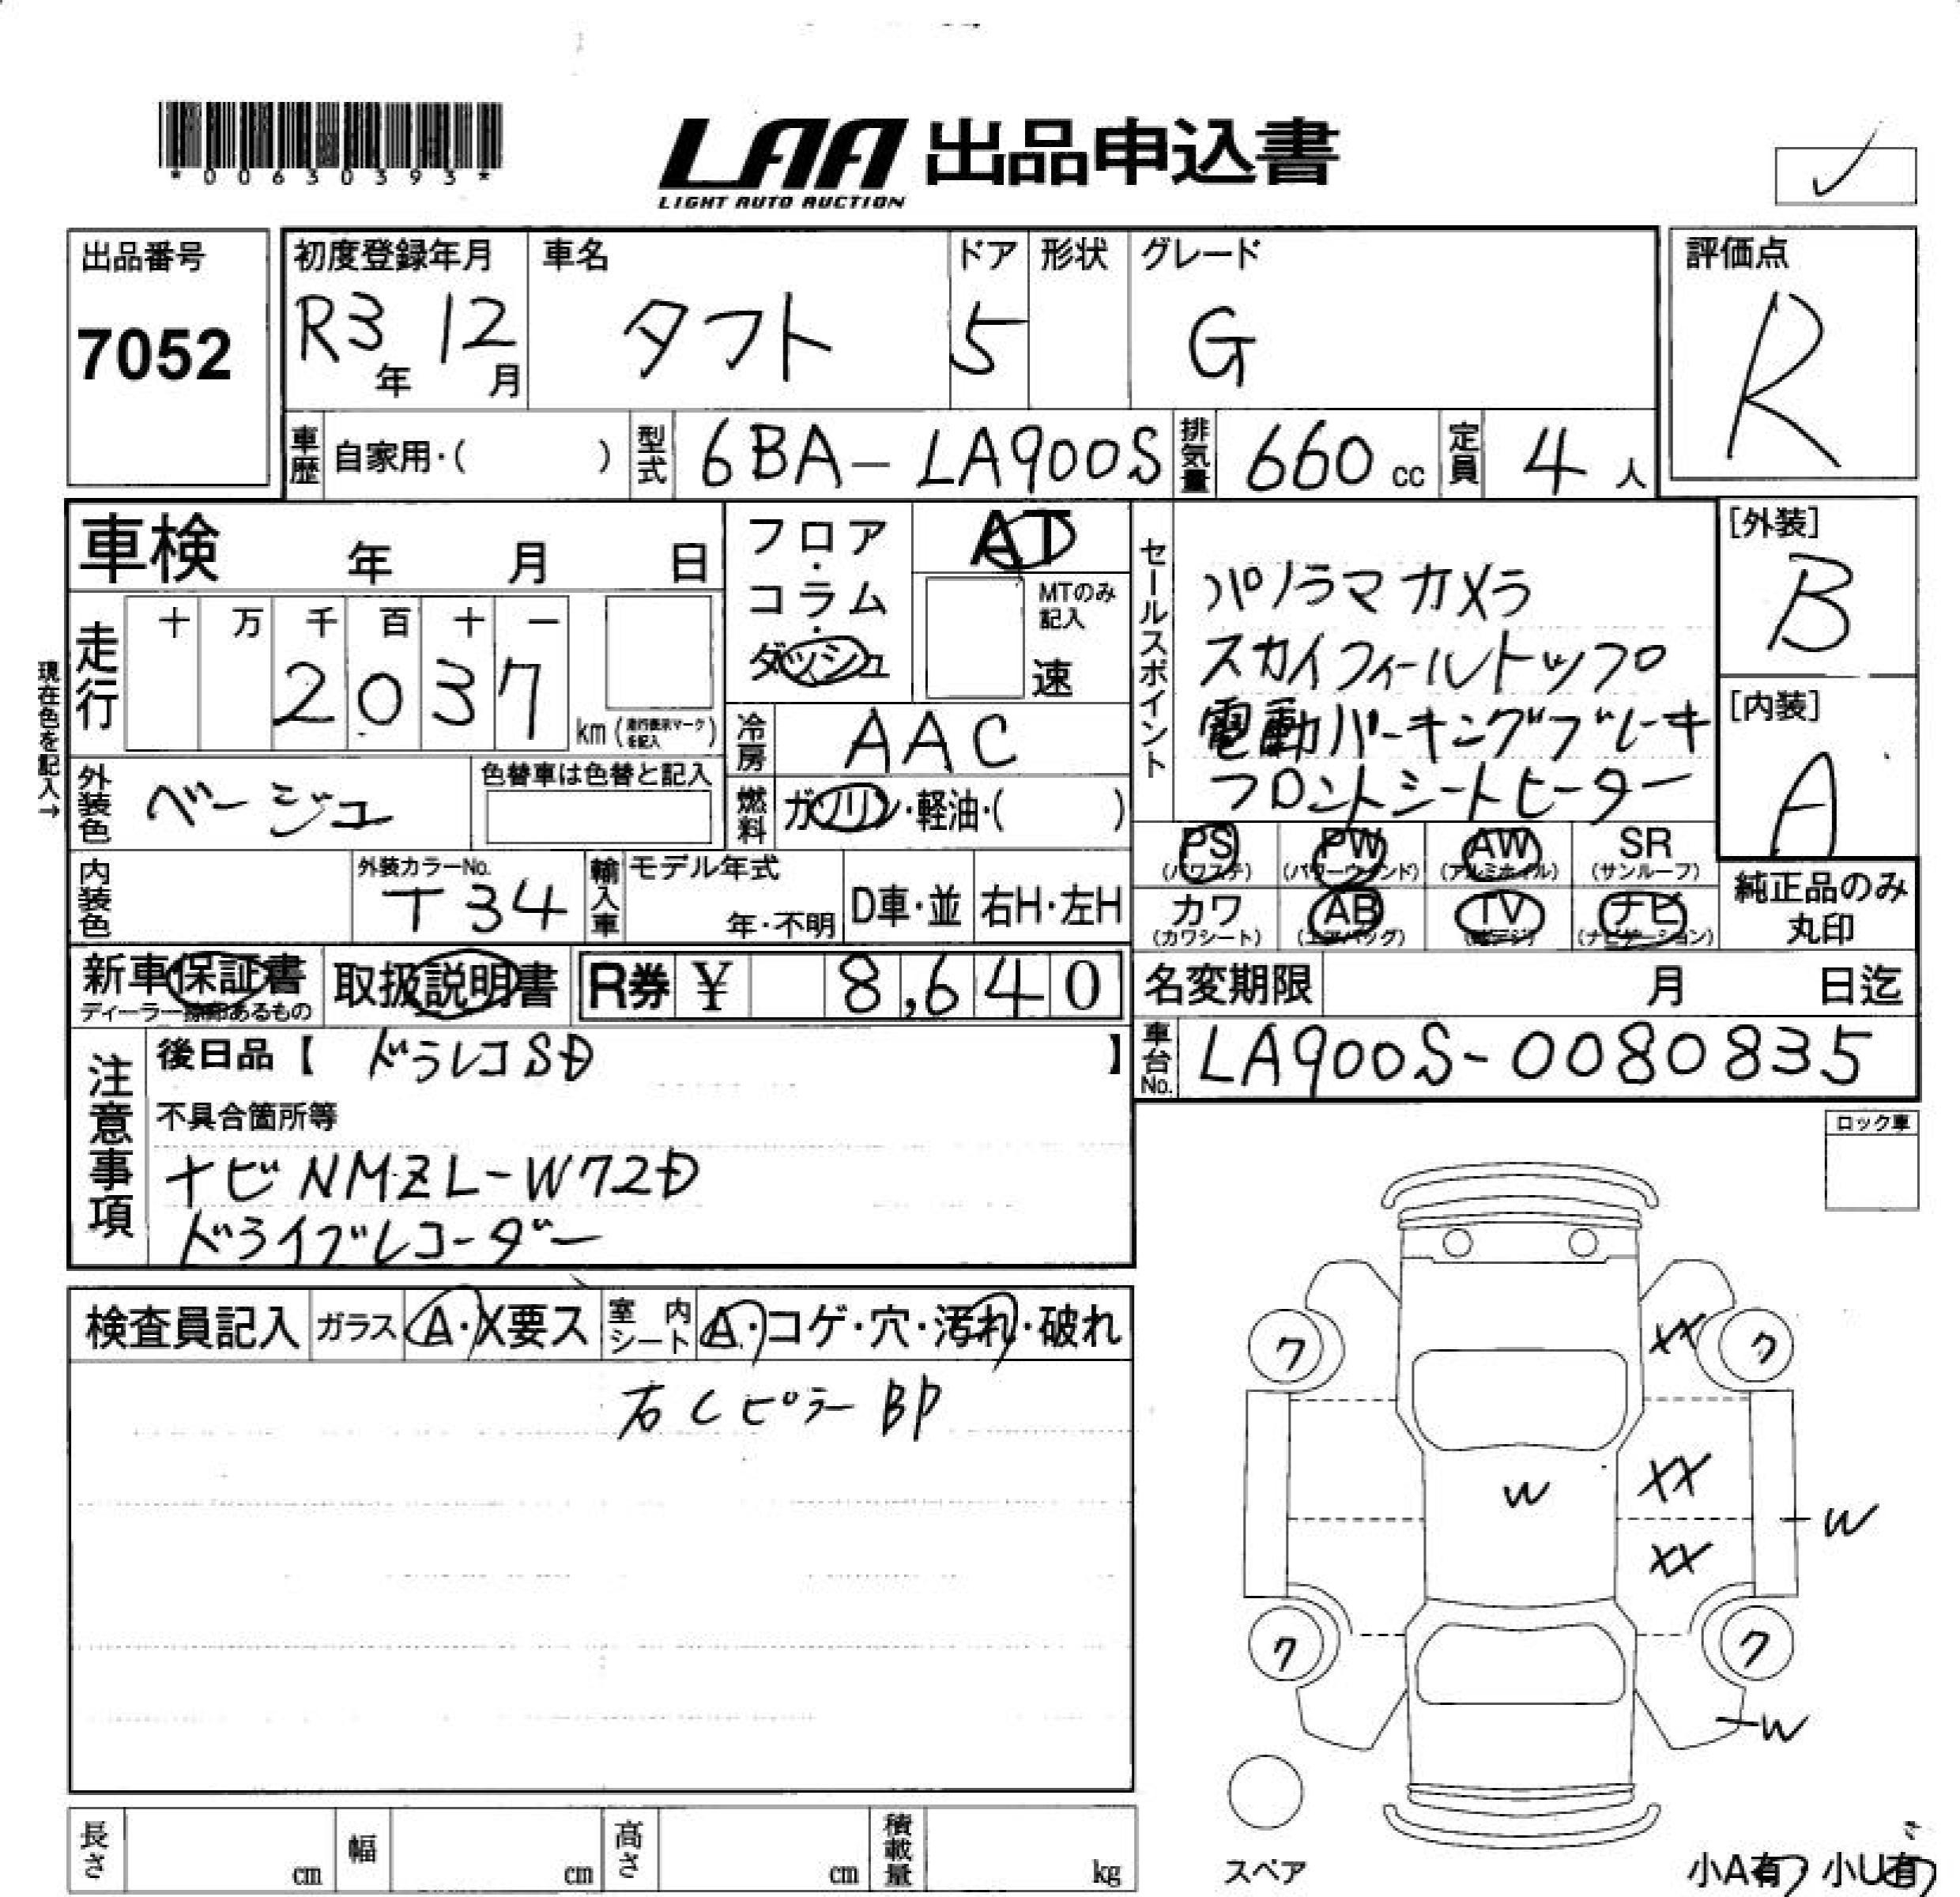 *00630393*
LAA 出品申込書
LIGHT AUTO AUCTION
出品番号 7052
初度登録年月 R3年 12月
車名 タフト
ドア 5
形状
グレード G
評価点 R
車歴 自家用・( )
型式 6BA-LA900S
排気量 660 cc
定員 4 人
車検 年 月 日
フロア・コラム・ダッシュ
AT
MTのみ記入
速
セールスポイント
パノラマカメラ
スカイフィールトップ
電動パーキングブレーキ
フロントシートヒーター
[外装] B
[内装] A
現在色を記入→
走行 十 万 千 百 十 一
2037 km (走行表示マークを記入)
冷房 AAC
外装色 ベージュ
色替車は色替と記入
燃料 ガソリン・軽油・( )
PS (パワステ) PW (パワーウインド) AW (アルミホイル) SR (サンルーフ)
カワ (カワシート) AB (エアバッグ) TV (地デジ) ナビ (ナビゲーション)
純正品のみ丸印
内装色
外装カラーNo. T34
輸入車 モデル年式 年・不明 D車・並 右H・左H
新車保証書
取扱説明書
R券 ¥ 8,640
名変期限 月 日迄
車台No. LA900S-0080835
注意事項
後日品【 ドラレコSD 】
不具合箇所等
ナビ NMZL-W72D
ドライブレコーダー
ロック車
検査員記入 ガラス A・X要ス 室内シート A・コゲ・穴・汚れ・破れ
右Cピラー BP
XX
ク ク
XX
W
W
XX
ク ク
W
スペア
小A有 小U有
長さ cm 幅 cm 高さ cm 積載量 kg